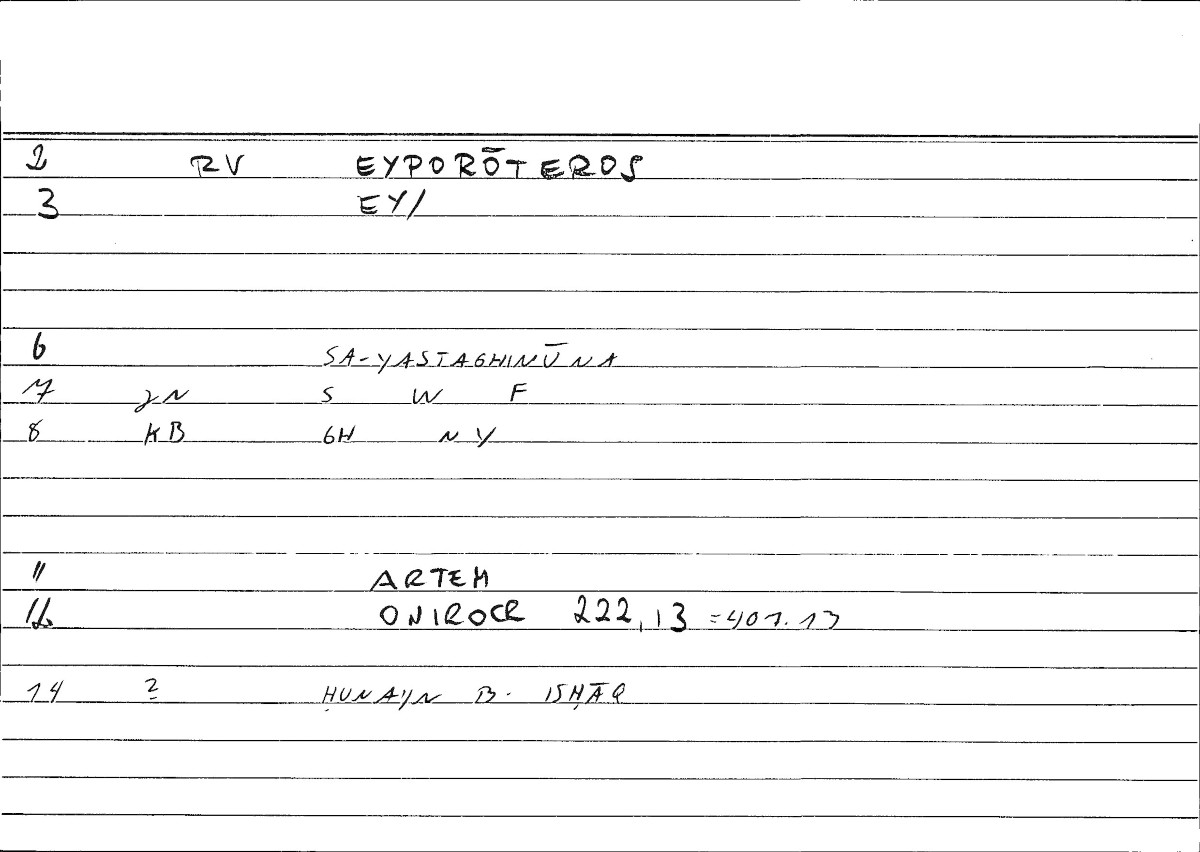 2 RV EYPORŌTEROS
3 EY/
6 SA-YASTAGHINŪNA
7 JN S W F
8 KB GH NY
11 ARTEM
12 ONIROCR 222,13 =401.13
14 2 ḤUNAYN B. ISḤĀQ